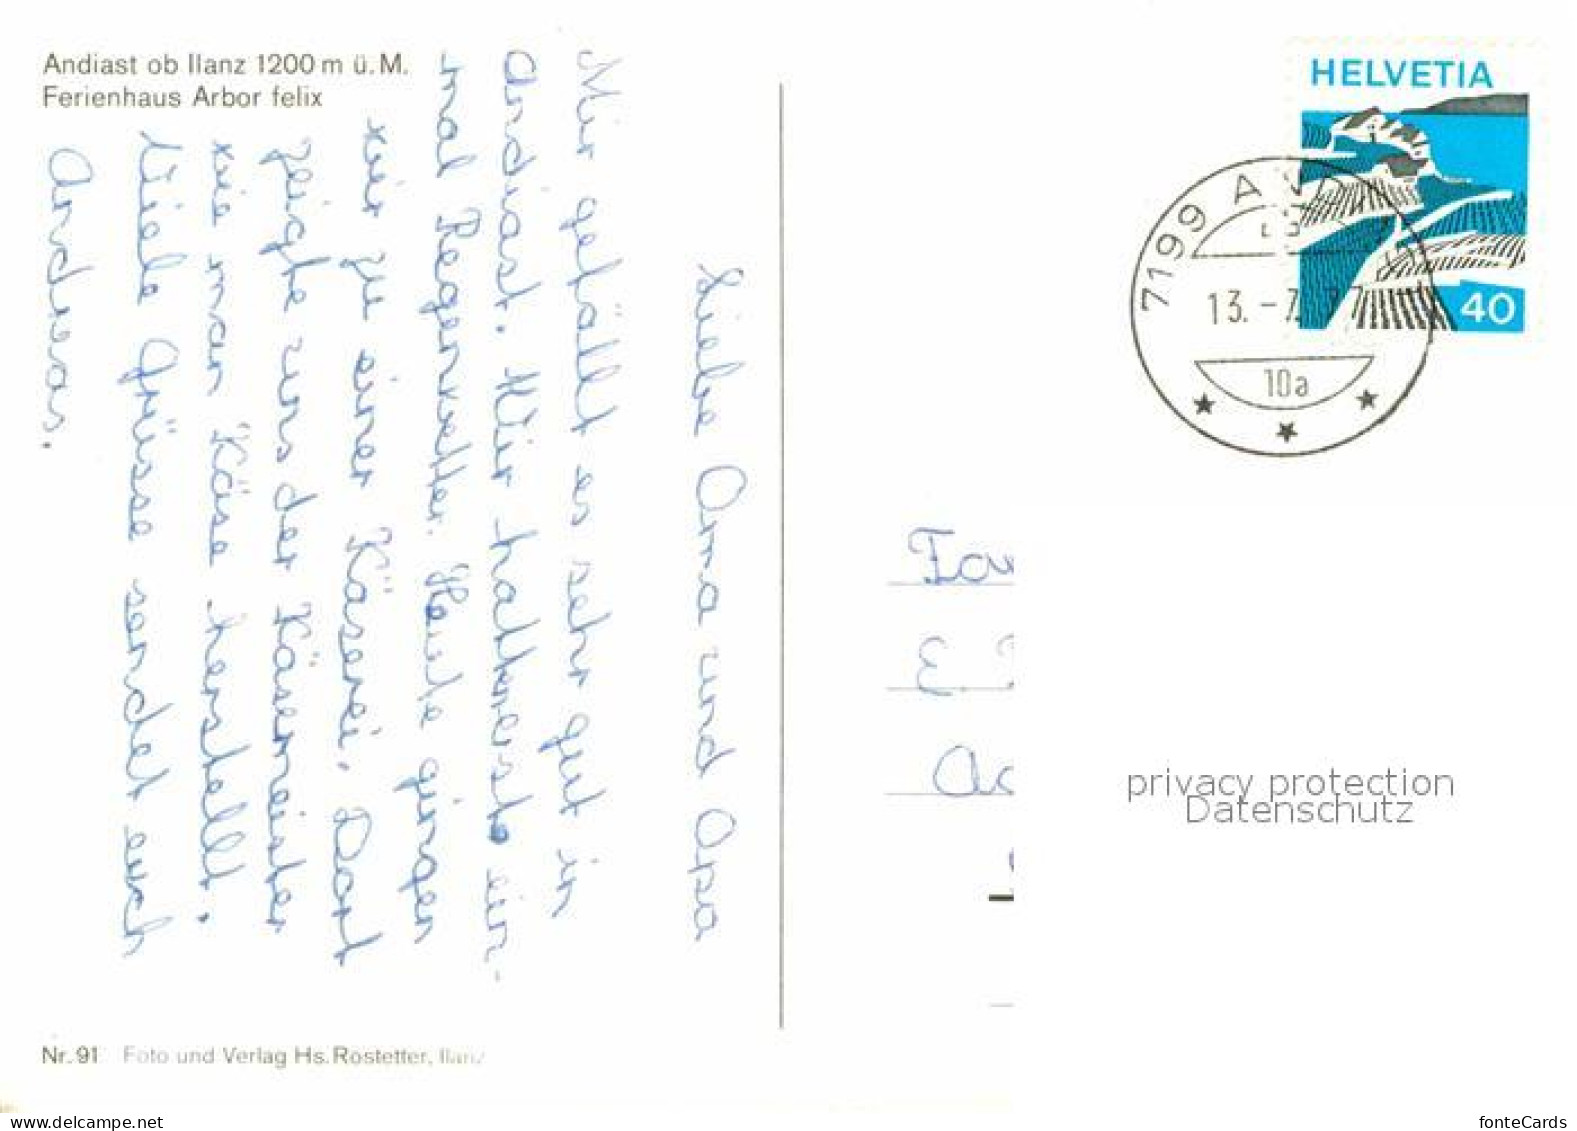 Andiast ob Ilanz 1200 m ü. M.
Ferienhaus Arbor felix
Liebe Oma und Opa
Mir gefällt es sehr gut in
Andiast. Wir hatten erst ein-
mal Regenwetter. Heute gingen
wir zu einer Käserei. Dort
zeigte uns der Käsermeister
wie man Käse herstellt.
Viele Grüsse sendet euch
Andreas.
Nr. 91 Foto und Verlag Hs. Rostetter, Ilanz
HELVETIA
40
7199 AND
13. -7. 77
10a
Fa
E.
privacy protection
Datenschutz
www.delcampe.net
fonteCards